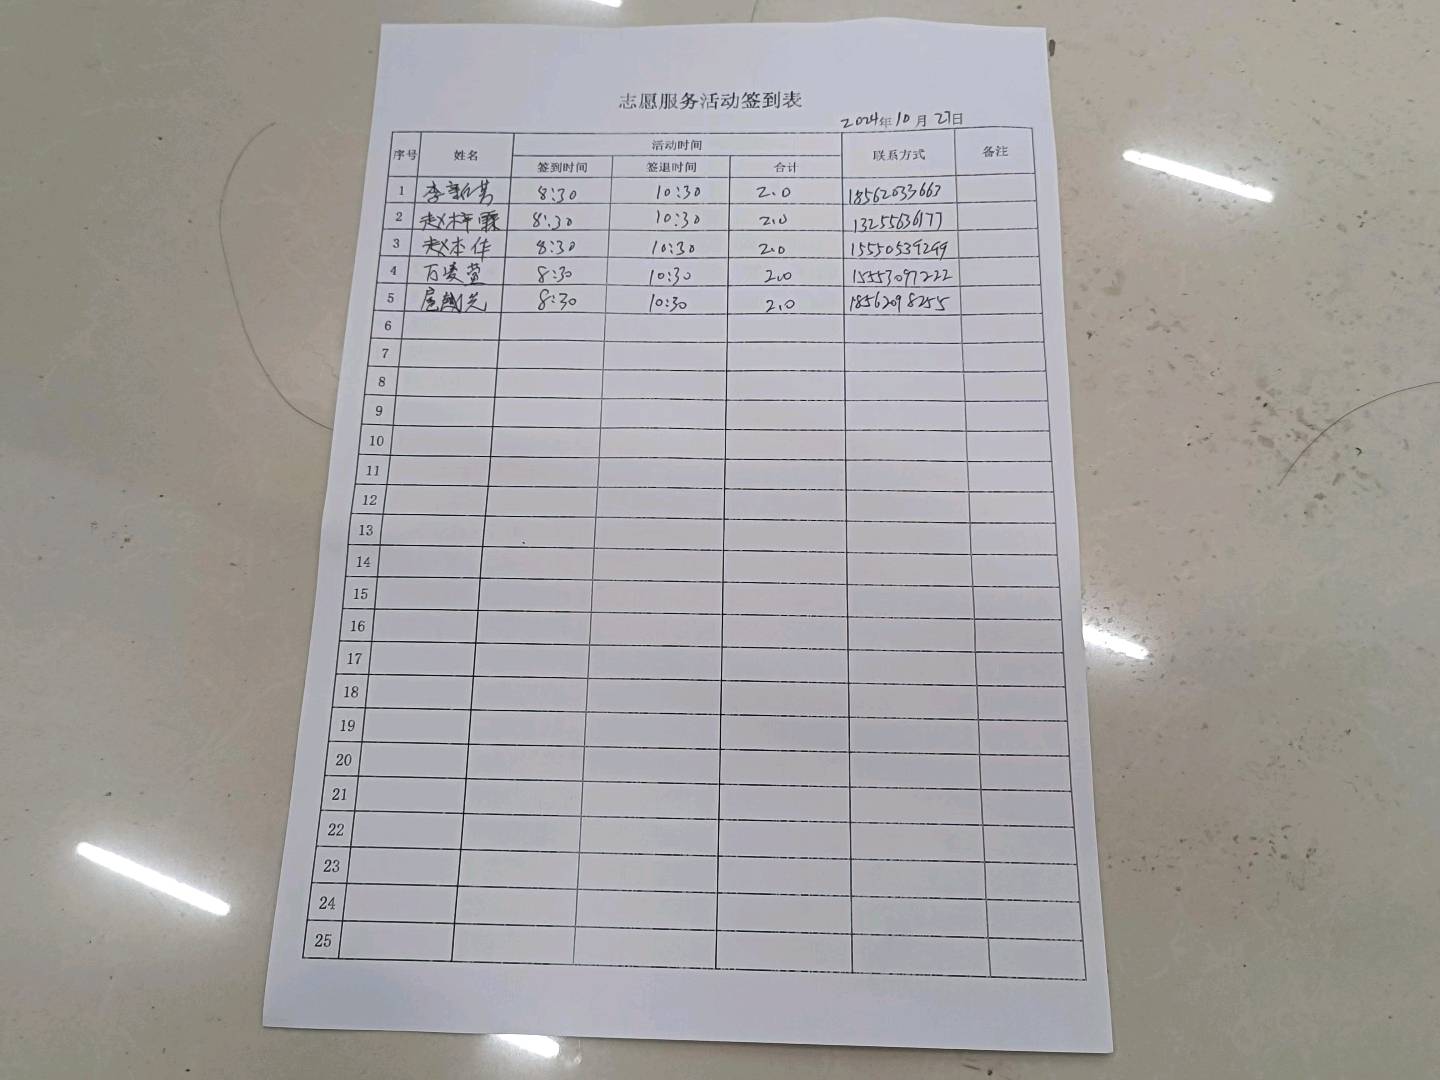 志愿服务活动签到表
2024年10月27日
序号 姓名 活动时间 联系方式 备注
签到时间 签退时间 合计
1 李新茗 8:30 10:30 2.0 18562033663
2 赵梓霖 8:30 10:30 2.0 13255636177
3 赵本作 8:30 10:30 2.0 15550539299
4 万凌萱 8:30 10:30 2.0 15553097222
5 8:30 10:30 2.0 18562098255
6
7
8
9
10
11
12
13
14
15
16
17
18
19
20
21
22
23
24
25